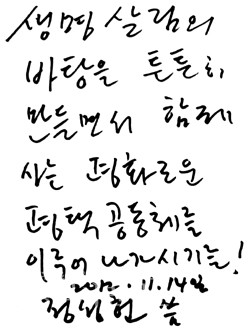 생명 살림의
바탕을 튼튼히
만들면서 함께
사는 평화로운
평택 공동체를
이루어 나가시기를!
2012.11.14일
정성헌 씀